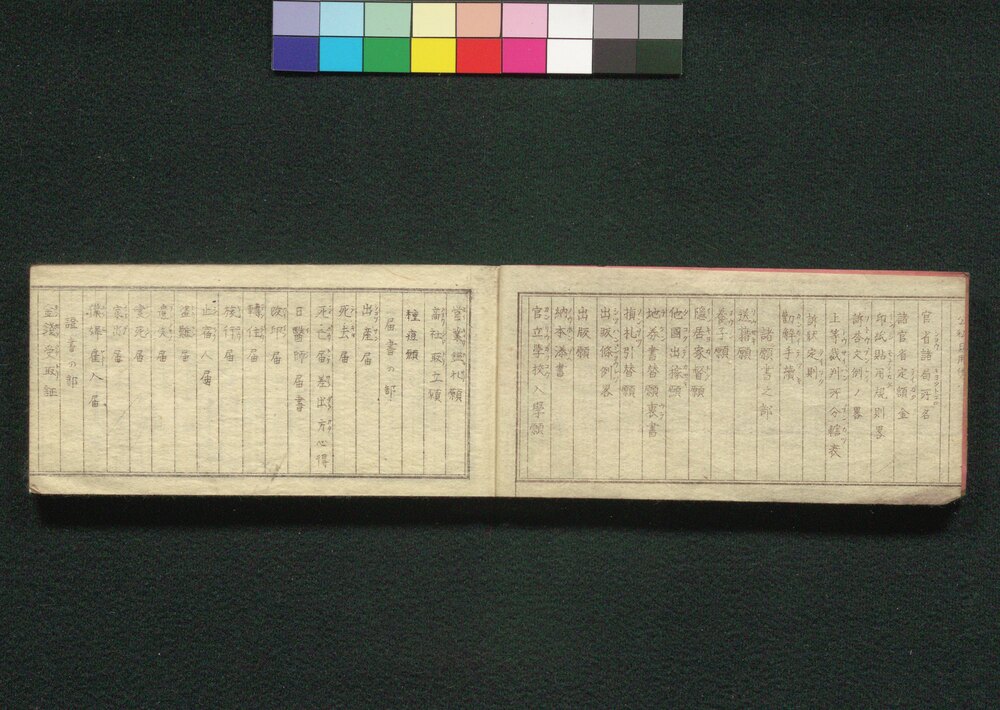 官省諸局所名
諸官省定額金
印紙貼用規則畧
訴答文例ノ畧
上等裁判所分轄表
訴状定則
勧解手續
諸願書之部
送籍願
養子願
隱居家督願
他國出稼願
地券書替願裏書
損札引替願
出版條例畧
出版願
納本添書
官立學校入學願
營業鑑札願
商社取立願
種痘願
届書の部
出産届
死去届
死亡届差出方心得
日醫師届書
改印届
轉住届
旅行届
止宿人届
盗難届
遺失届
変死届
届
雇入届
證書の部
金銭受取証